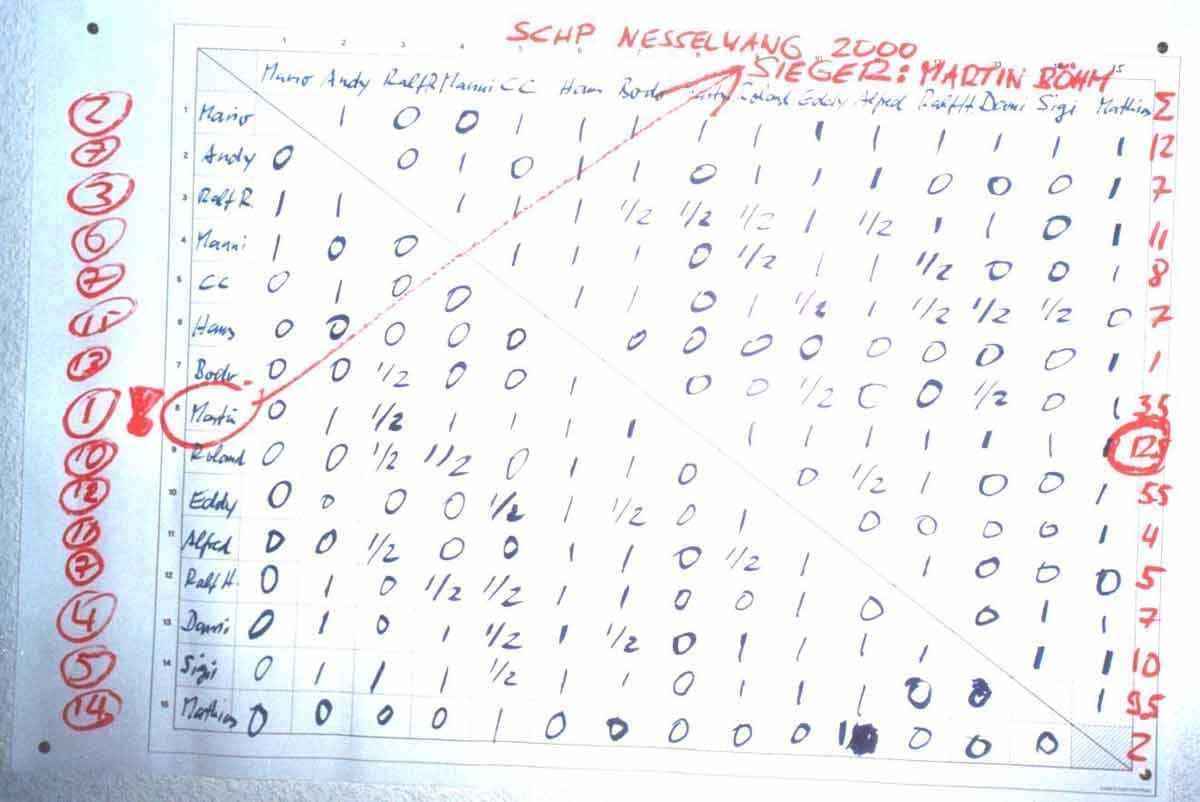 SCHP NESSELWANG 2000
SIEGER: MARTIN BÖHM
1 2 3 4
Mario Andy Ralf R Manni CC Hans Bodo Roland Eddy Alfred Ralf H. Danni Sigi Mathias Σ
② 1 Mario 1 0 0 1 1 1 1 1 1 1 1 1 1 1 12
⑦ 2 Andy 0 0 1 0 1 1 0 1 1 1 0 0 0 1 7
③ 3 Ralf R. 1 1 1 1 1 1/2 1/2 1/2 1 1/2 1 1 0 1 11
⑥ 4 Manni 1 0 0 1 1 1 0 1/2 1 1 1/2 0 0 1 8
⑦ 5 CC 0 1 0 0 1 1 0 1 1/2 1 1/2 1/2 1/2 0 7
6 Hans 0 0 0 0 0 0 0 0 0 0 0 0 0 1 1
⑬ 7 Bodo 0 0 1/2 0 0 1 0 0 1/2 0 0 1/2 0 1 35
① ! 8 Martin 0 1 1/2 1 1 1 1 1 1 1 1 1 1 1 125
⑩ 9 Roland 0 0 1/2 1/2 0 1 1 0 0 1/2 1 0 0 1 55
⑫ 10 Eddy 0 0 0 0 1/2 1 1/2 0 1 0 0 0 0 1 4
11 Alfred 0 0 1/2 0 0 1 1 0 1/2 1 1 0 0 0 5
⑦ 12 Ralf H. 0 1 0 1/2 1/2 1 1 0 0 1 0 0 1 1 7
④ 13 Danni 0 1 0 1 1/2 1 1/2 0 1 1 1 1 1 1 10
⑤ 14 Sigi 0 1 1 1 1/2 1 1 0 1 1 1 0 0 1 95
⑭ 15 Mathias 0 0 0 0 1 0 0 0 0 0 1 0 0 0 2